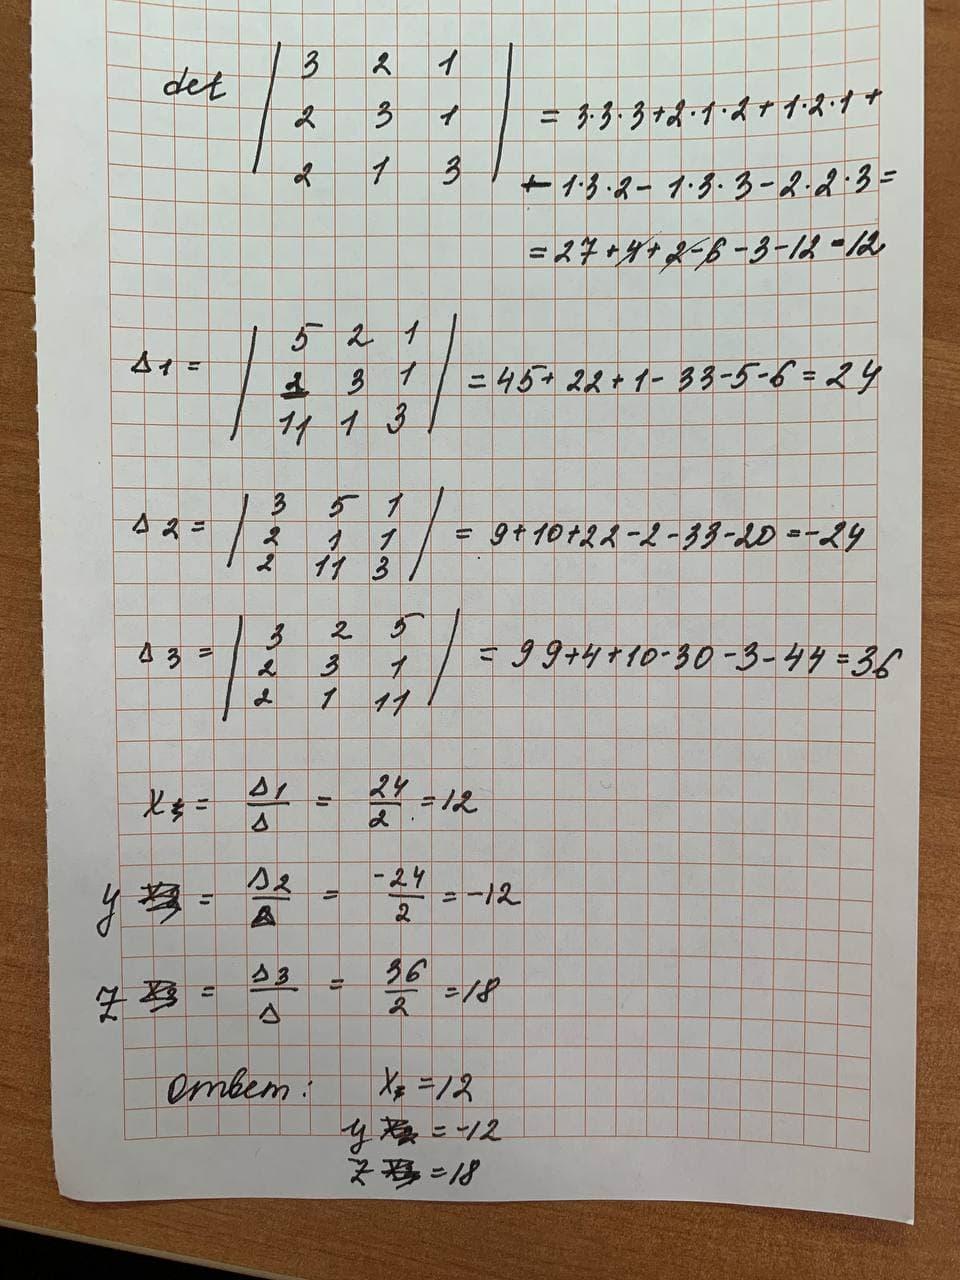 det | 3 2 1 |
| 2 3 1 | = 3·3·3+2·1·2+1·2·1+
| 2 1 3 | + 1·3·2- 1·3·3-2·2·3=
=27+4+2-6-3-12=12
Δ1= | 5 2 1 |
| 1 3 1 | =45+22+1-33-5-6=24
| 11 1 3 |
Δ2= | 3 5 1 |
| 2 1 1 | = 9+10+22-2-33-20=-24
| 2 11 3 |
Δ3= | 3 2 5 |
| 2 3 1 | = 99+4+10-30-3-44=36
| 2 1 11 |
X = Δ1/Δ = 24/2 =12
y = Δ2/Δ = -24/2 =-12
Z = Δ3/Δ = 36/2 =18
Ответ: X =12
y =-12
Z =18